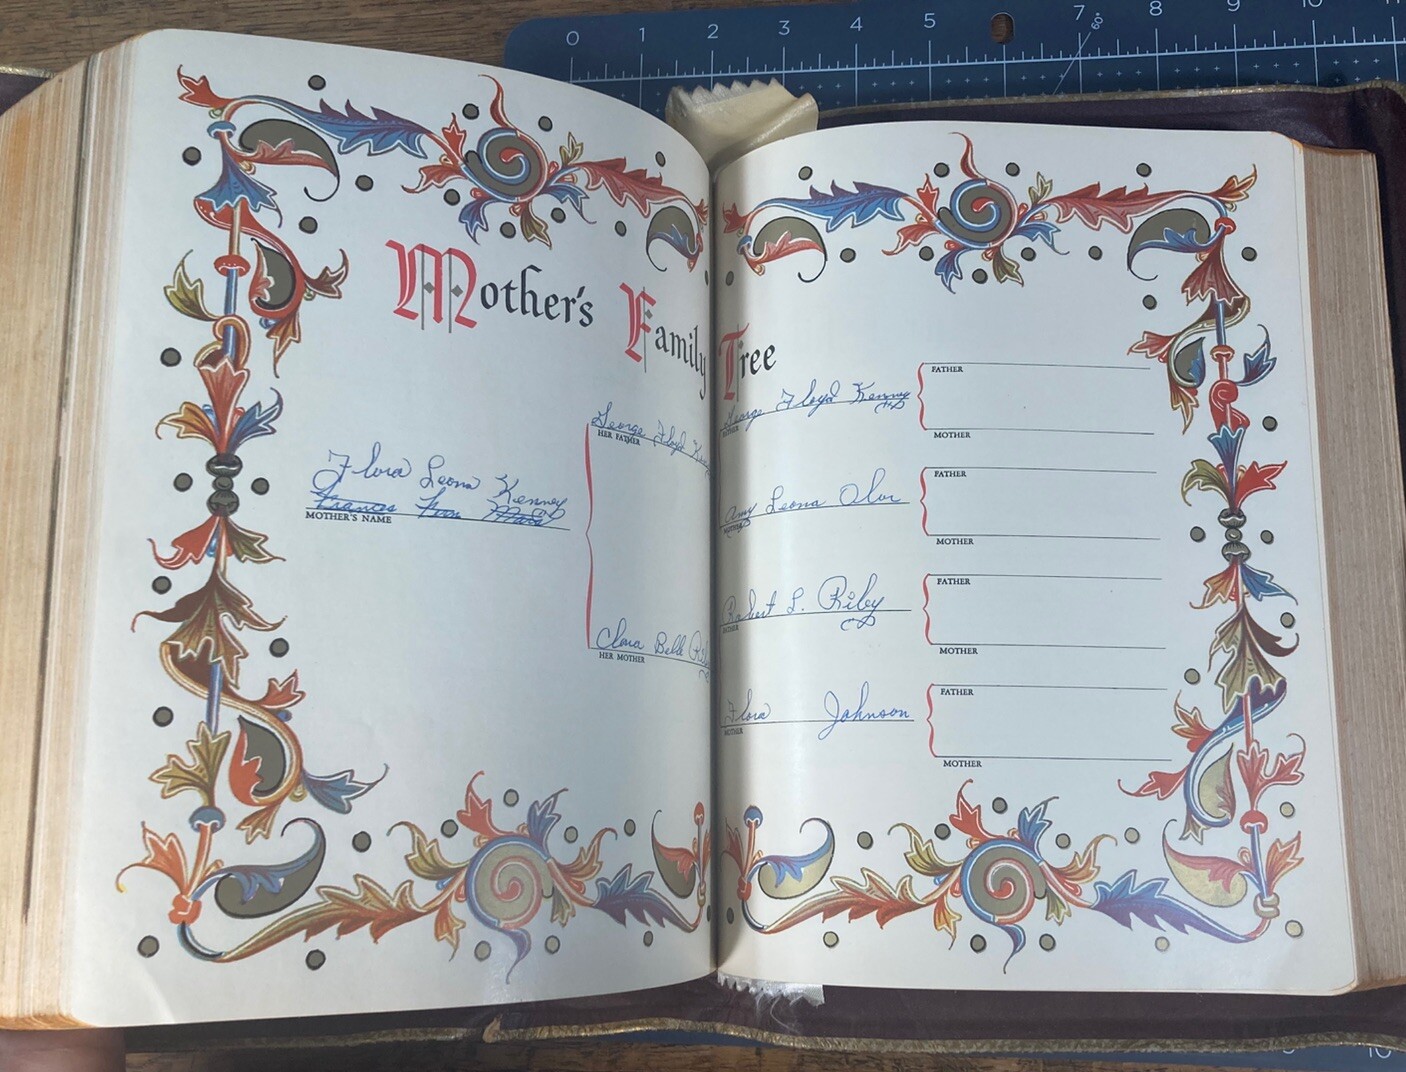 0 1 2 3 4 5 7 8 9 10
60°
Mother's Family Tree
George Floyd
HER FATHER
Flora Leona Kenney
Frances
MOTHER'S NAME
Clara Belle
HER MOTHER
George Floyd Kenney
FATHER
Amy Leona
MOTHER
Robert L. Riley
FATHER
Flora Johnson
MOTHER
FATHER
MOTHER
FATHER
MOTHER
FATHER
MOTHER
FATHER
MOTHER
10